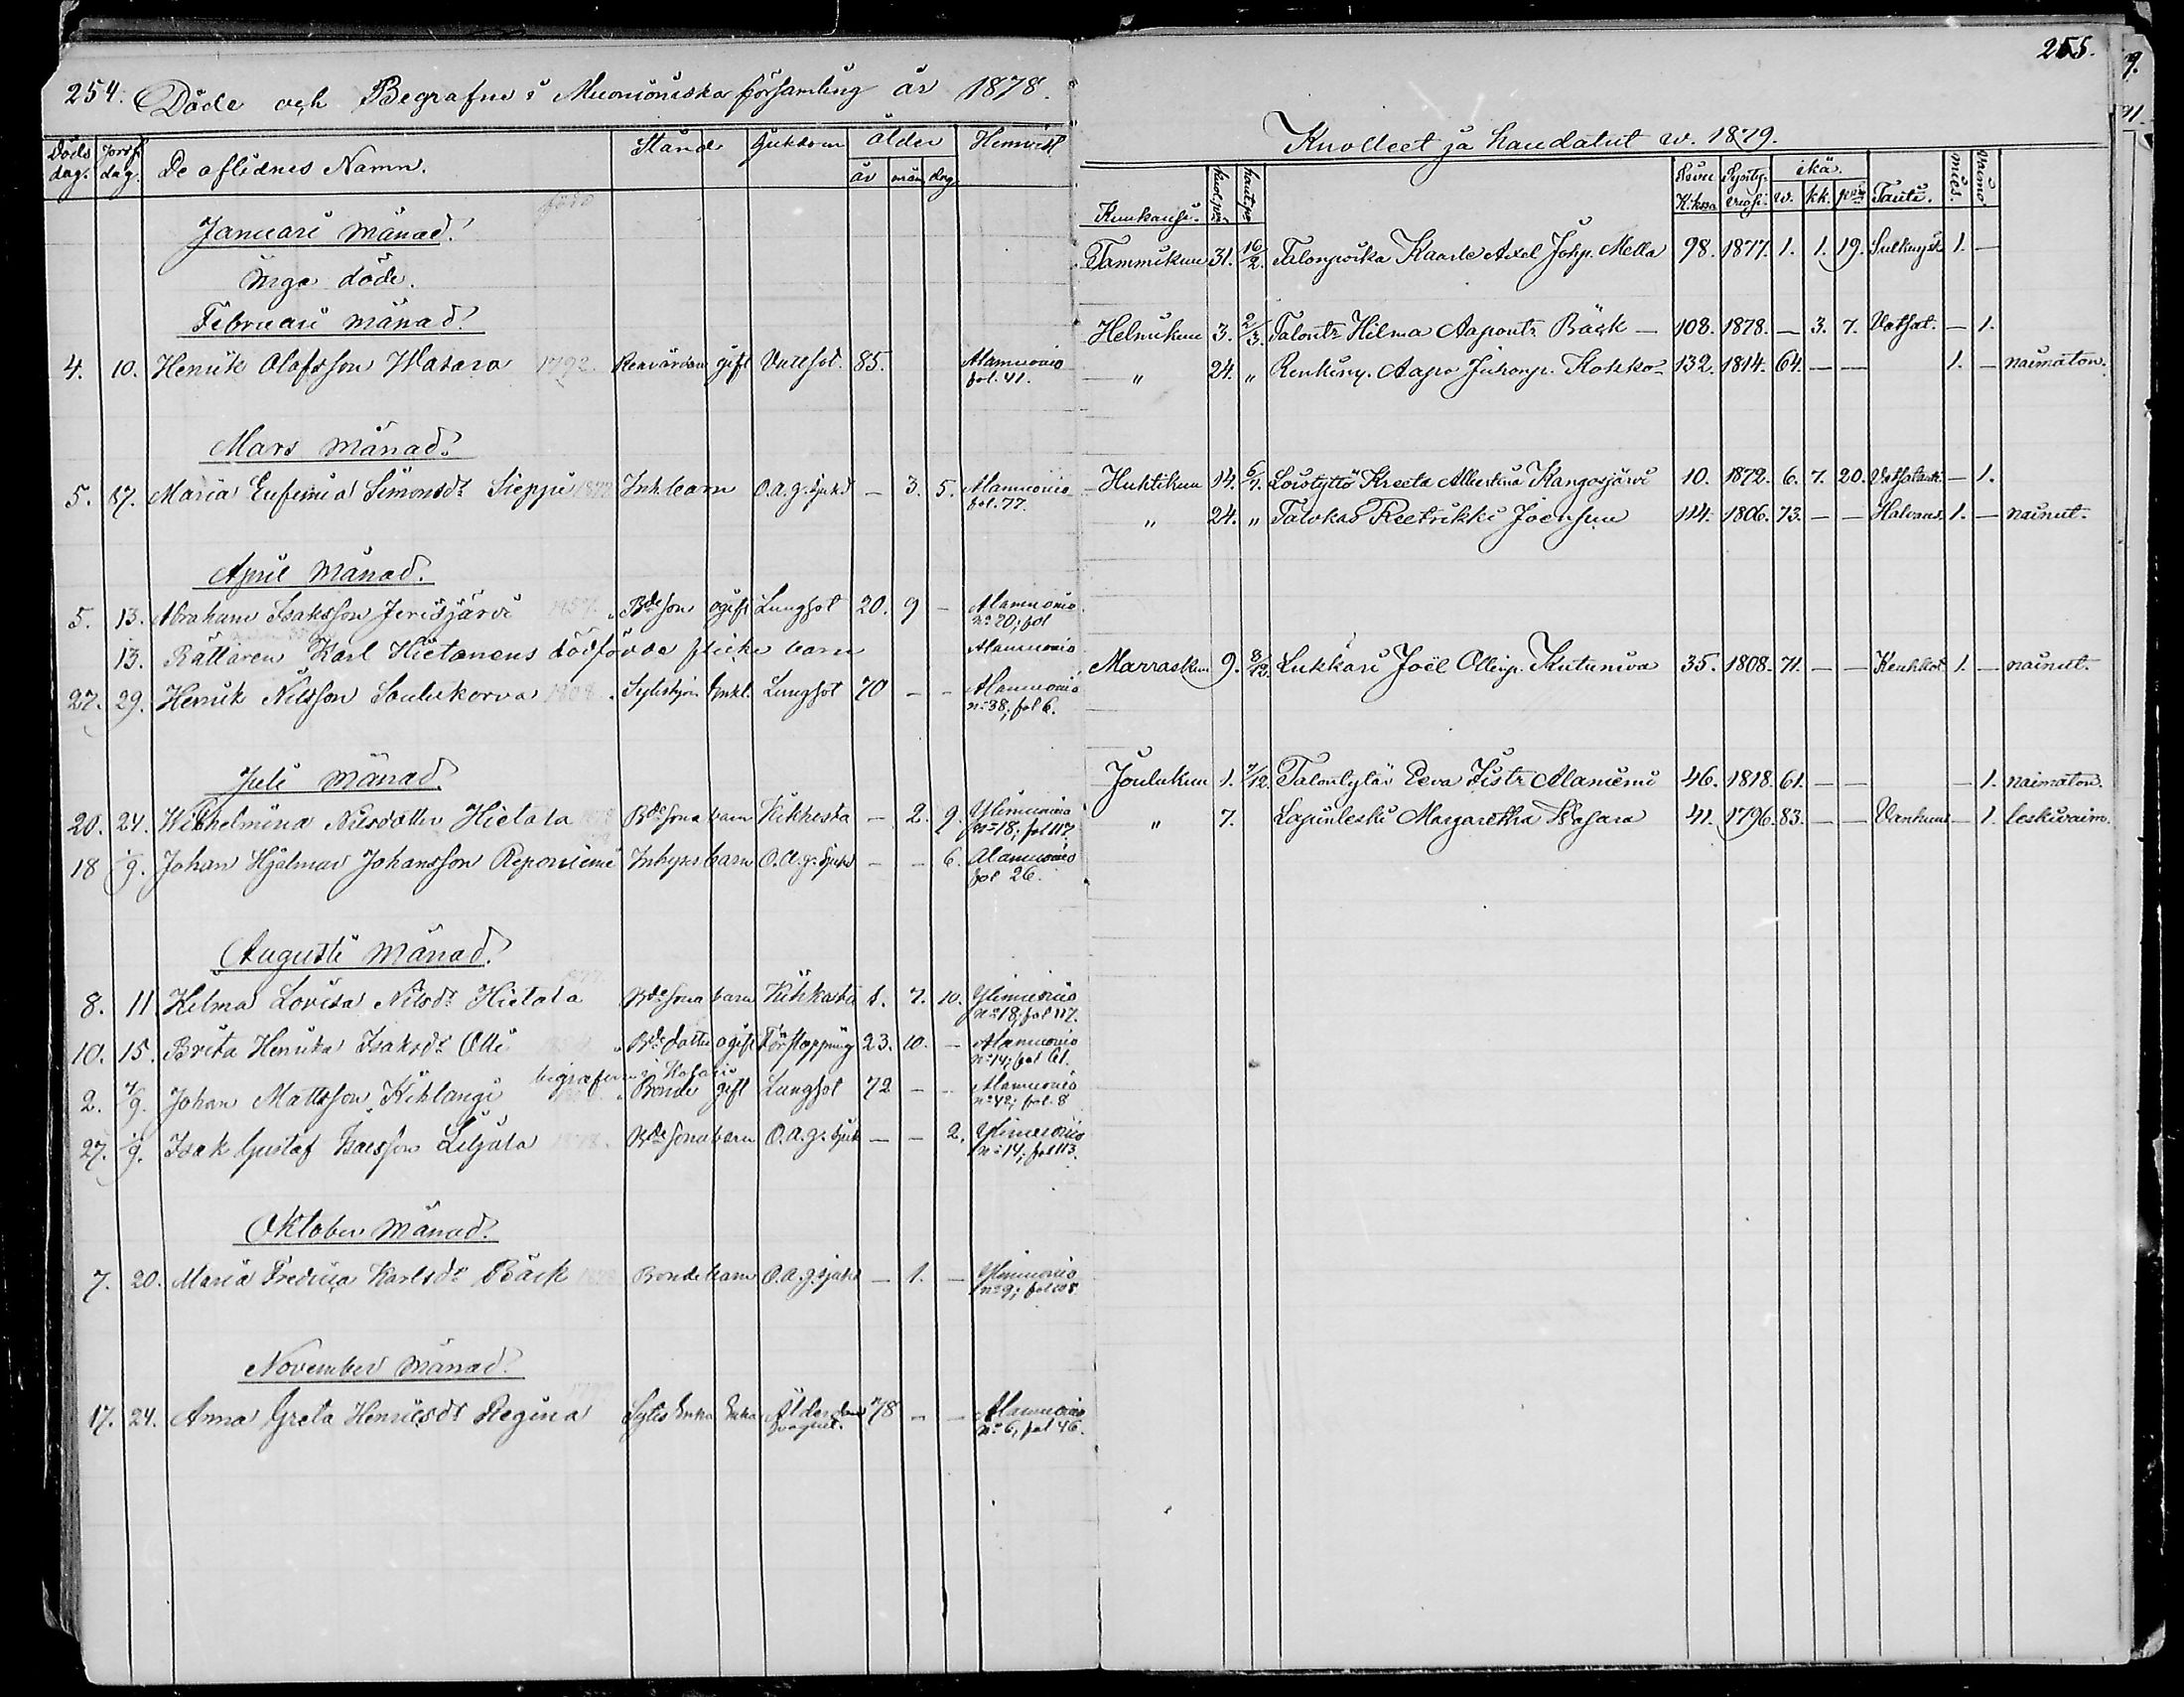 254. Döde och Begrafne i Muonioniska församling år 1878.
Döds dag. Jordf. dag. De aflidnes Namn. Stånd Sjukdom ålder år mån dag. Hemvist
född
Januari Månad.
Inga döde.
Februari månad.
4. 10. Henrik Olofsson Wasara 1792. gift 85. Alamuonio
fol. 41.
Mars månad.
5. 17. Maria Eufemia Simonsdr Sieppi 1877 Inh. barn O.a.g. sjukd — 3. 5. Alamuonio
fol. 77.
April Månad.
5. 13. Abraham Isaksson Jerisjärvi 1857. Bdeson ogift Lungsot 20. 9 — Alamuonio
no 20; fol
13. Rättaren Karl Hietanens dödfödda flicke barn Alamuonio
27. 29. Henrik Nilsson Soulukorva 1808. Enkl. Lungsot 70 — — Alamuonio
no 38; fol 6.
Juli månad.
20. 24. Wilhelmina Nilsdotter Hietala 1878 Bdesona barn Kikhosta — 2. 9. Ylimuonio
no 18; fol 117.
18 Johan Hjalmar Johansson Reponiemi barn O.a.g. sjukd — — 6. Alamuonio
fol 26.
Augusti månad.
1877.
8. 11. Hilma Lovisa Nilsdr Hietala Bdesona barn Kikhosta 1. 7. 10. Ylimuonio
no 18; fol 117.
10. 15. Brita Henrika Isaksdr Olli Bdedotter ogift Förstoppning 23. 10. — Alamuonio
no 14; fol 61.
begrafven i Kolari
2. Johan Mattsson Kihlangi Bonde gift Lungsot 72 — — Alamuonio
no 42; fol. 8
27. Isak Gustaf Isacsson Liljala 1878. Bdesona barn O.a.g. sjuk — — 2. Ylimuonio
no 14; fol 113.
Oktober månad.
7. 20. Maria Fredrica Karlsdr Bäck 1878 Bondebarn O.a.g. sjukd — 1. — Ylimuonio
no 9; fol 108
November månad.
17. 24. Anna Greta Henricsdr Regina Sytis Enka Enka Ålderdoms 78 — — Alamuonio
no 6, fol 46.
255.
Kuolleet ja haudatut w. 1879.
Kuukausi. kuol.pä. haut.pä. Sivu K.kssa Synty- vuosi. ikä. w. kk. pää. Tauti. mies. vaimo.
Tammikuu 31. 16/2. Talonpoika Kaarle Axel Johp. Mella 98. 1877. 1. 1. 19. 1. —
Helmikuu 3. 2/3. Talontr Hilma Aapontr Bäck — 108. 1878. — 3. 7. Vatsat. — 1.
" 24. " Renkiny. Aapo Juhonp. Kokko 132. 1814. 64. — — 1. — naimaton.
Huhtikuu 14. Loistyttö Kreeta Albertina Kangosjärvi 10. 1872. 6. 7. 20. — 1.
" 24. " Talokas Reetrikki Joensuu 114. 1806. 73. — — Halvaus. 1. — nainut.
Marraskuu 9. 8/12. Lukkari Joël Ollinp. Kutuniva 35. 1808. 71. — — Keuhkot. 1. — nainut.
Joulukuu 1. 7/12. Talontytär Eeva Alaniemi 46. 1818. 61. — — — 1. naimaton.
" 7. Lapinleski Margaretha Wasara 41. 1796. 83. — — Vanhuus — 1. leskivaim.